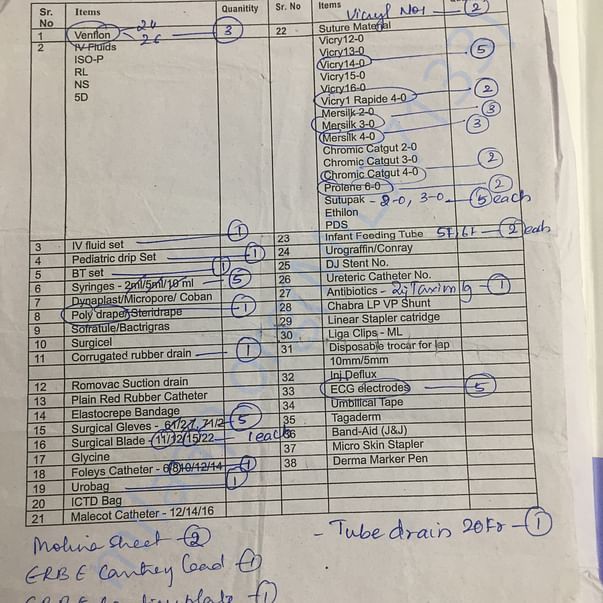 Vicryl No1 - 2
Sr. No Items Quanitity Sr. No Items
1 Venflon 24 26 3 22 Suture Material
2 IV Fluids Vicry12-0
ISO-P Vicry13-0 5
RL Vicry14-0
NS Vicry15-0
5D Vicry16-0
Vicry1 Rapide 4-0 2
Mersilk 2-0 3
Mersilk 3-0
Mersilk 4-0 3
Chromic Catgut 2-0
Chromic Catgut 3-0 2
Chromic Catgut 4-0
Prolene 6-0 2
Sutupak - 2-0, 3-0 5 each
Ethilon
PDS
3 IV fluid set 1 23 Infant Feeding Tube 5F, 6F 2 each
4 Pediatric drip Set 1 24 Urograffin/Conray
5 BT set 1 25 DJ Stent No.
6 Syringes - 2ml/5ml/10 ml 5 26 Ureteric Catheter No.
7 Dynaplast/Micropore/ Coban 27 Antibiotics - Inj Taxim 1g 1
8 Poly drape/Steridrape 1 28 Chabra LP VP Shunt
9 Sofratule/Bactrigras 29 Linear Stapler catridge
10 Surgicel 30 Liga Clips - ML
11 Corrugated rubber drain 1 31 Disposable trocar for lap
10mm/5mm
12 Romovac Suction drain 32 Inj Deflux
13 Plain Red Rubber Catheter 33 ECG electrodes 5
14 Elastocrepe Bandage 34 Umbilical Tape
15 Surgical Gleves - 5 35 Tagaderm
16 Surgical Blade - 11/12/15/22 1 each 36 Band-Aid (J&J)
17 Glycine 37 Micro Skin Stapler
18 Foleys Catheter - 6/8/10/12/14 1 38 Derma Marker Pen
19 Urobag 1
20 ICTD Bag
21 Malecot Catheter - 12/14/16
- Tube drain 20Fr - 1
Sheet - 2
ERBE Cautery Lead - 1
1